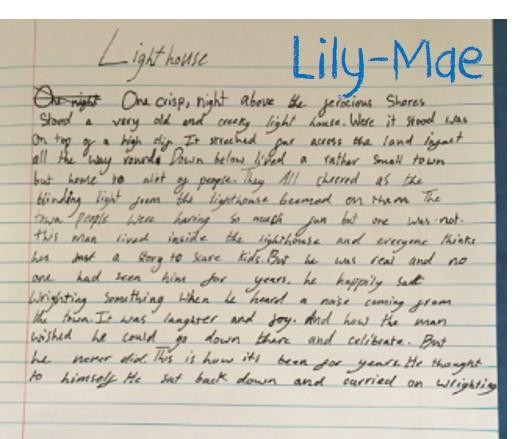 Lighthouse
Lily-Mae
One night One crisp, night above the ferocious Shores
Stood a very old and creeky light house. Were it stood was
on top of a high clif. It streched far across the land infact
all the way round. Down below lived a rather small town
but home to alot of people. They All cheered as the
blinding light from the lighthouse beamed on them The
town people were having so much fun but one was not.
this man lived inside the lighthouse and everyone thinks
hes Just a story to scare kids. But he was real and no
one had seen him for years. he happily sat
Wrighting Something when he heard a noise coming from
the town. It was laughter and Joy. And how the man
wished he could go down there and celibrate. But
he never did. This is how its been for years. He thought
to himself He sat back down and carried on wrighting